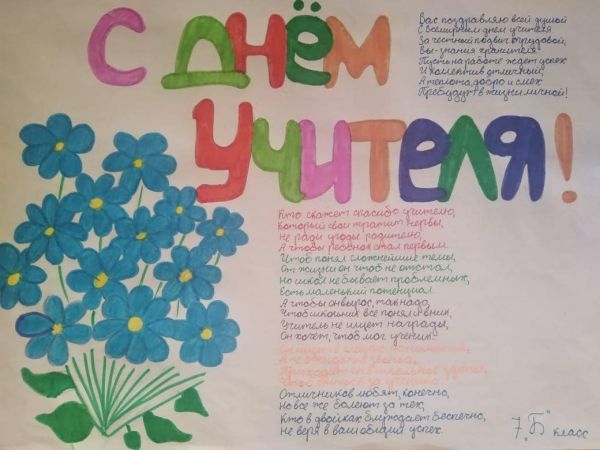 С ДНЁМ
УЧИТЕЛЯ!
Вас поздравляю всей душой
С Всемирным днем учителя
За честный подвиг трудовой,
Вы - знания хранителя
Пусть на работе ждет успех
И коллектив отличный,
А теплота, добро и смех
Пребудут в жизни личной!
Кто скажет спасибо учителю,
Который свои тратит нервы,
Не ради угоды родителю,
А чтобы ребенок стал первым.
Чтоб понял сложнейшие темы,
От жизни он чтоб не отстал,
Но школ не бывает проблемных,
Есть маленький потенциал.
А чтобы он вырос, так надо,
Чтоб школьник все понял и вник,
Учитель не ищет награды,
Он хочет, чтоб мог ученик
Отличников любят, конечно,
Но все же болеют за тех,
Кто в двойках блуждает беспечно,
Не веря в ваш общий успех.
7 "Б" класс